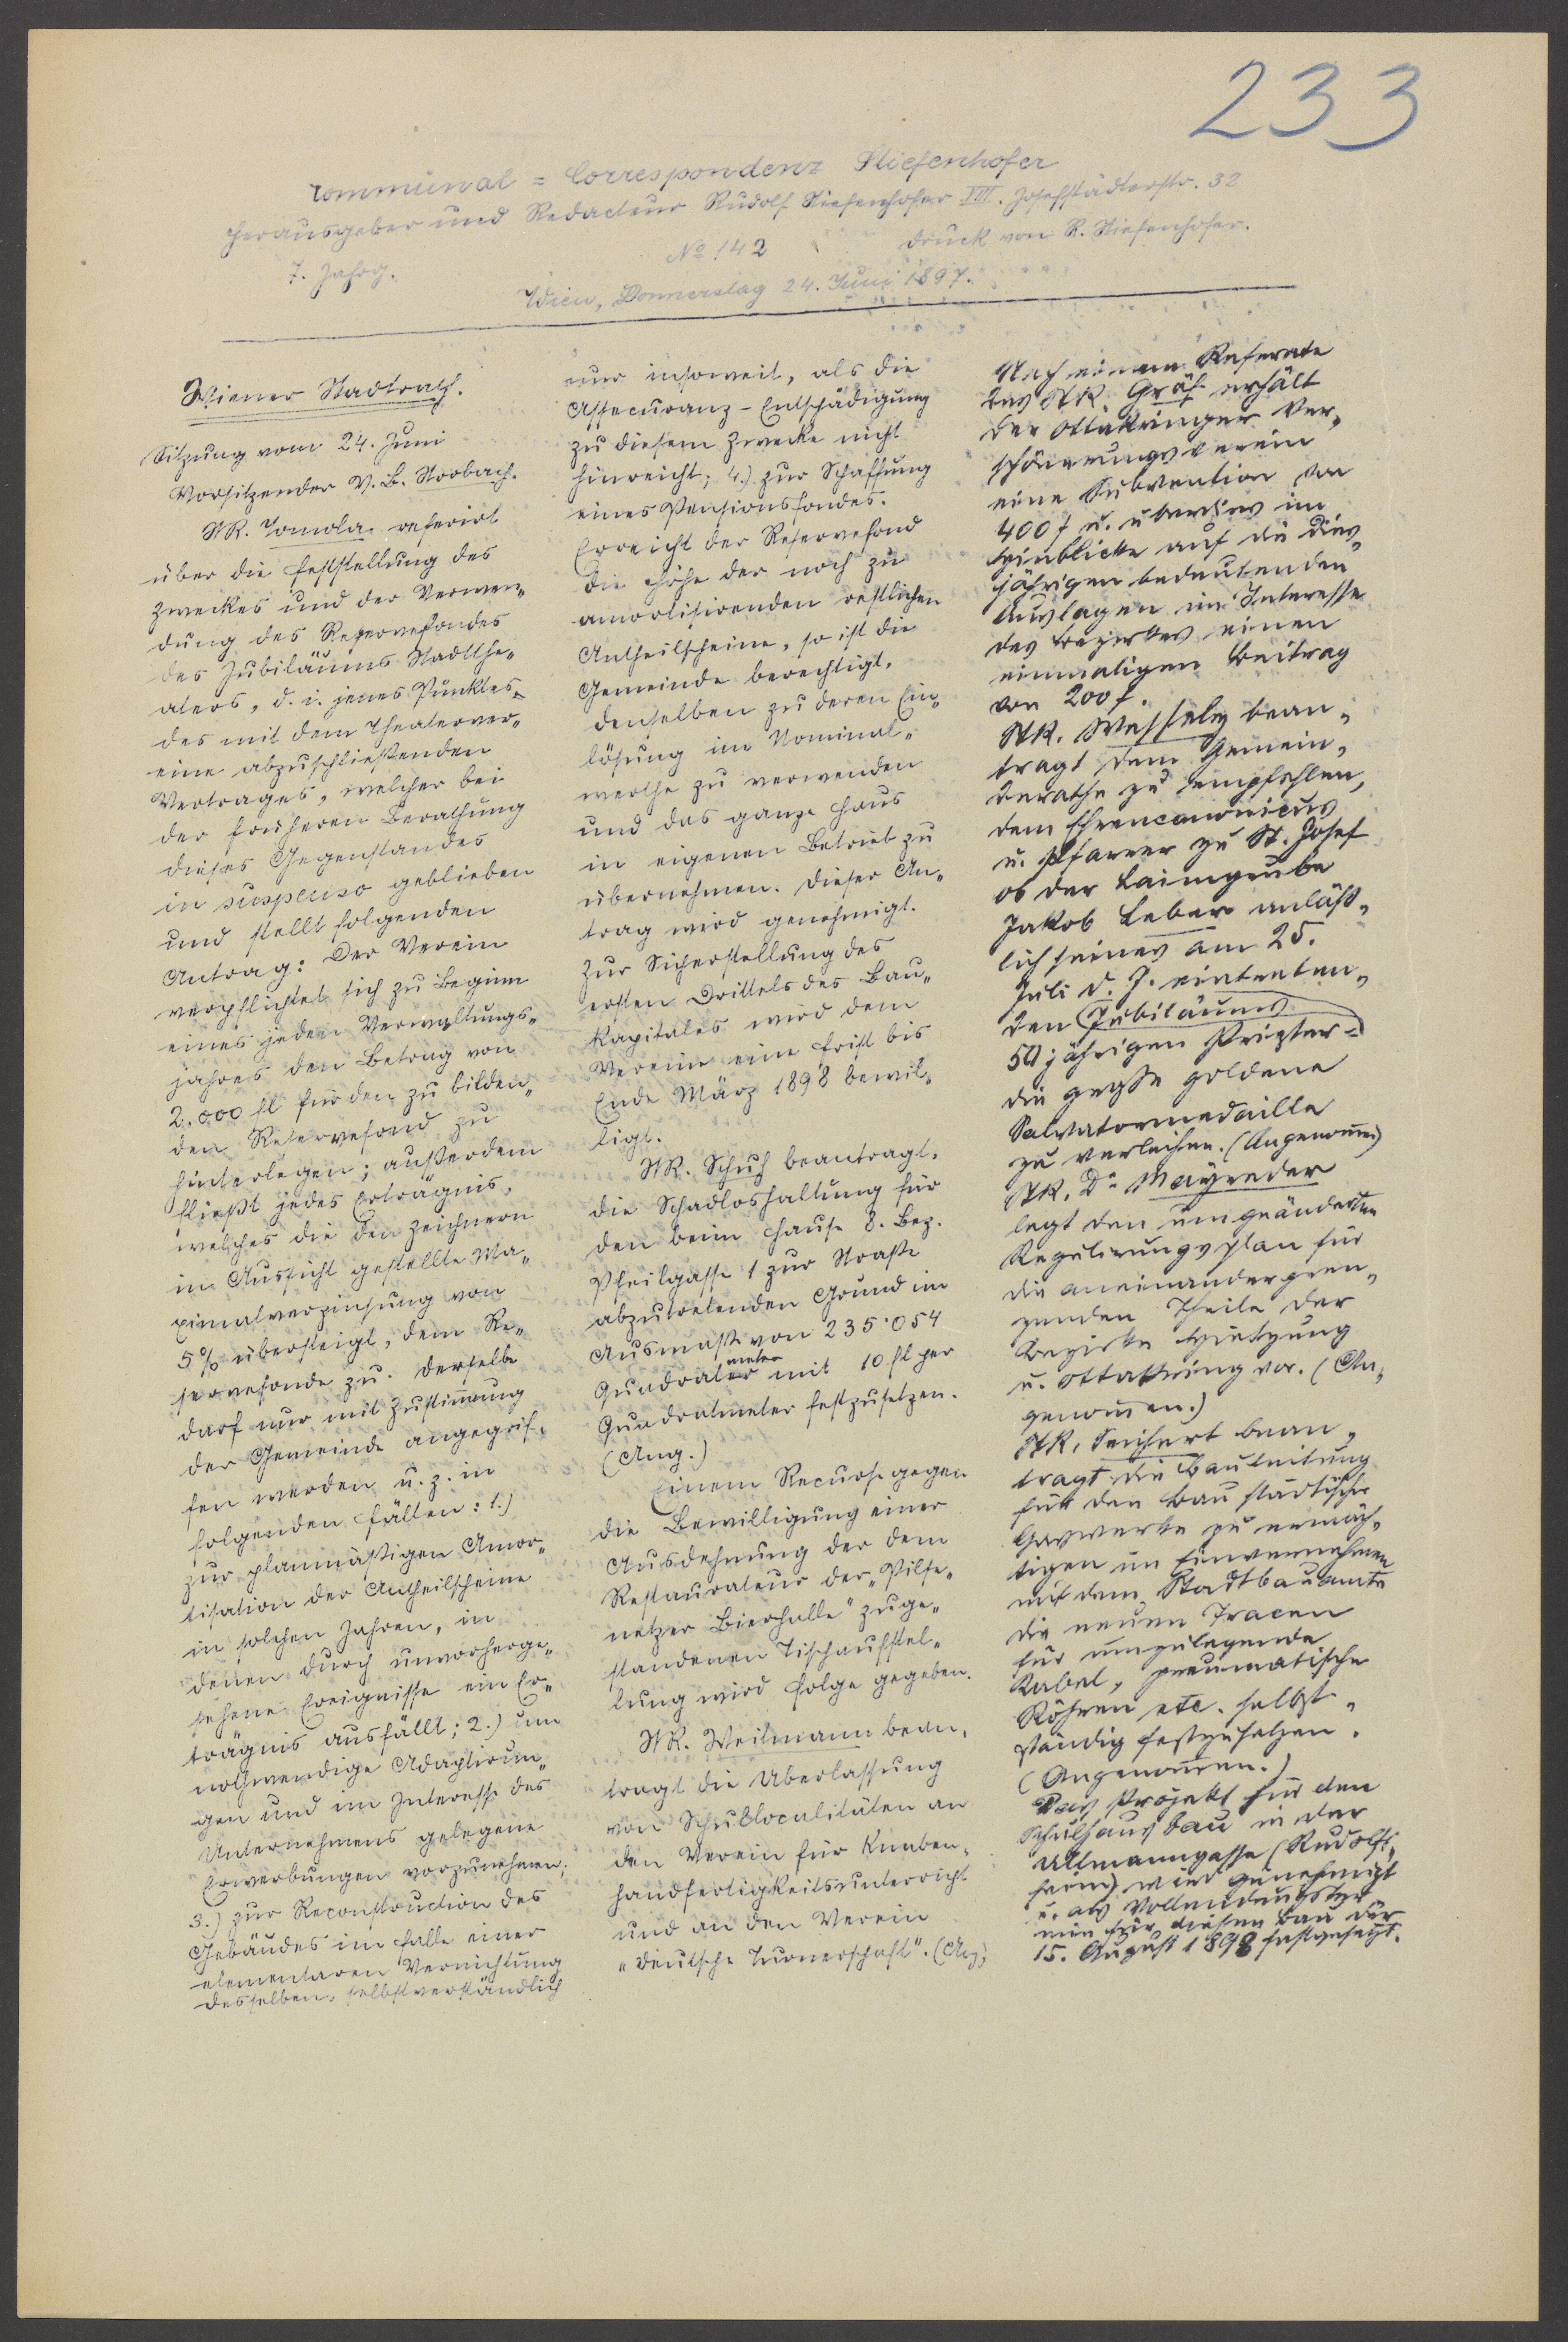 233
Communal = Correspondenz Stiefenhofer
Herausgeber und Redacteur Rudolf Stiefenhofer VIII. Josefstädterstr. 32
7. Jahrg. No 142 Druck von R. Stiefenhofer.
Wien, Donnerstag 24. Juni 1897.
Wiener Stadtrath.
Sitzung vom 24. Juni
Vorsitzender V. B. Strobach.
StR. Tomola referirt
über die Feststellung des
Zweckes und der Verwen„
dung des Reservefondes
des Jubiläums Stadtthe„
aters, d. i. jenes Punktes
des mit dem Theaterver„
eine abzuschließenden
Vertrages, welcher bei
der früheren Berathung
dieses Gegenstandes
in suspenso geblieben
und stellt folgenden
Antrag: Der Verein
verpflichtet sich zu Beginn
eines jeden Verwaltungs„
jahres den Betrag von
2.000 fl für den zu bilden„
den Reservefond zu
hinterlegen; außerdem
fließt jedes Erträgnis,
welches die den Zeichnern
in Aussicht gestellte Ma„
ximalverzinsung von
5% übersteigt, dem Re„
servefonde zu. Derselbe
darf nur mit Zustim̄ung
der Gemeinde angegrif„
fen werden u. z. in
folgenden Fällen: 1.)
zur planmäßigen Amor„
tisation der Antheilscheine
in solchen Jahren, in
denen durch unvorherge„
sehene Ereignisse ein Er„
trägnis ausfällt; 2.) um
nothwendige Adaptirun„
gen und im Interesse des
Unternehmens gelegene
Erwerbungen vorzunehmen;
3.) zur Reconstruction des
Gebäudes im Falle einer
elementaren Vernichtung
desselben, selbstverständlich
nur insoweit, als die
Assecuranz-Entschädigung
zu diesem Zwecke nicht
hinreicht; 4.) zur Schaffung
eines Pensionsfondes.
Erreicht der Reservefond
die Höhe der noch zu
amortisirenden restlichen
Antheilscheine, so ist die
Gemeinde berechtigt,
denselben zu deren Ein„
lösung im Nominal„
werthe zu verwenden
und das ganze Haus
in eigenen Betrieb zu
übernehmen. Dieser An„
trag wird genehmigt.
Zur Sicherstellung des
ersten Drittels des Bau„
kapitales wird dem
Vereine eine Frist bis
Ende März 1898 bewil„
ligt.
StR. Schuh beantragt,
die Schadloshaltung für
den beim Hause 8. Bez.
Pfeilgasse 1 zur Straße
abzutretenden Grund im
Ausmaße von 235·054
Quadratmeter mit 10 fl per
Quadratmeter festzusetzen.
(Ang.)
Einem Recurse gegen
die Bewilligung einer
Ausdehnung der dem
Restaurateur der „Pilse„
netzer Bierhalle" zuge„
standenen Tischaufstel„
lung wird Folge gegeben.
StR. Weitmann bean„
tragt die Überlassung
von Schullocalitäten an
den Verein für Knaben„
handfertigkeitsunterricht
und an den Verein
„Deutsche Turnerschaft". (Ang.)
Nach einem Referate
des StR. Gräf erhält
der Ottakringer Ver„
schönerungsverein
eine Subvention von
400 f u. überdies im
Hinblicke auf die dies„
jährigen bedeutenden
Auslagen im Interesse
des Bezirkes einen
einmaligen Beitrag
von 200 f.
StR. Wessely bean„
tragt dem Gemein„
derathe zu empfehlen,
dem Ehrencanonicus
u. Pfarrer zu St. Josef
ob der Laimgrube
Jakob Leber anläß„
lich seines am 25.
Juli d. J. eintreten„
den Jubiläums
50 jährigen Priester-
die große goldene
Salvatormedaille
zu verleihen. (Angenom̄en)
StR. Dr Mayreder
legt den umgeänderten
Regulirungsplan für
die aneinandergren„
zenden Theile der
Bezirke Hietzing
u. Ottakring vor. (An„
genom̄en.)
StR. Seichert bean„
tragt die Bauleitung
für den Bau städtischer
Gaswerke zu ermäch„
tigen im Einvernehmen
mit dem Stadtbauamte
die neuen Tracen
für umzulegende
Kabel, pneumatische
Röhren etc. selbst„
ständig festzusetzen.
(Angenom̄en.)
Das Projekt für den
Schulhausbau in der
Ullmanngasse (Rudolfs„
heim) wird genehmigt
u. als Vollendungster„
min für diesen Bau der
15. August 1898 festgesetzt.